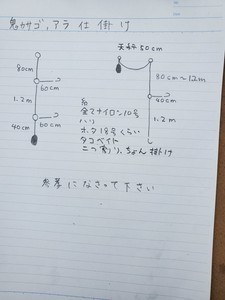 鬼カサゴ,アラ仕掛け
天秤 50cm
80cm
60cm
1.2m
60cm
40cm
80cm〜1.2m
40cm
1.2m
糸
全てナイロン10号
ハリ
ホタ18号くらい
タコベイト
二つ割り,ちょん掛け
参考になさって下さい